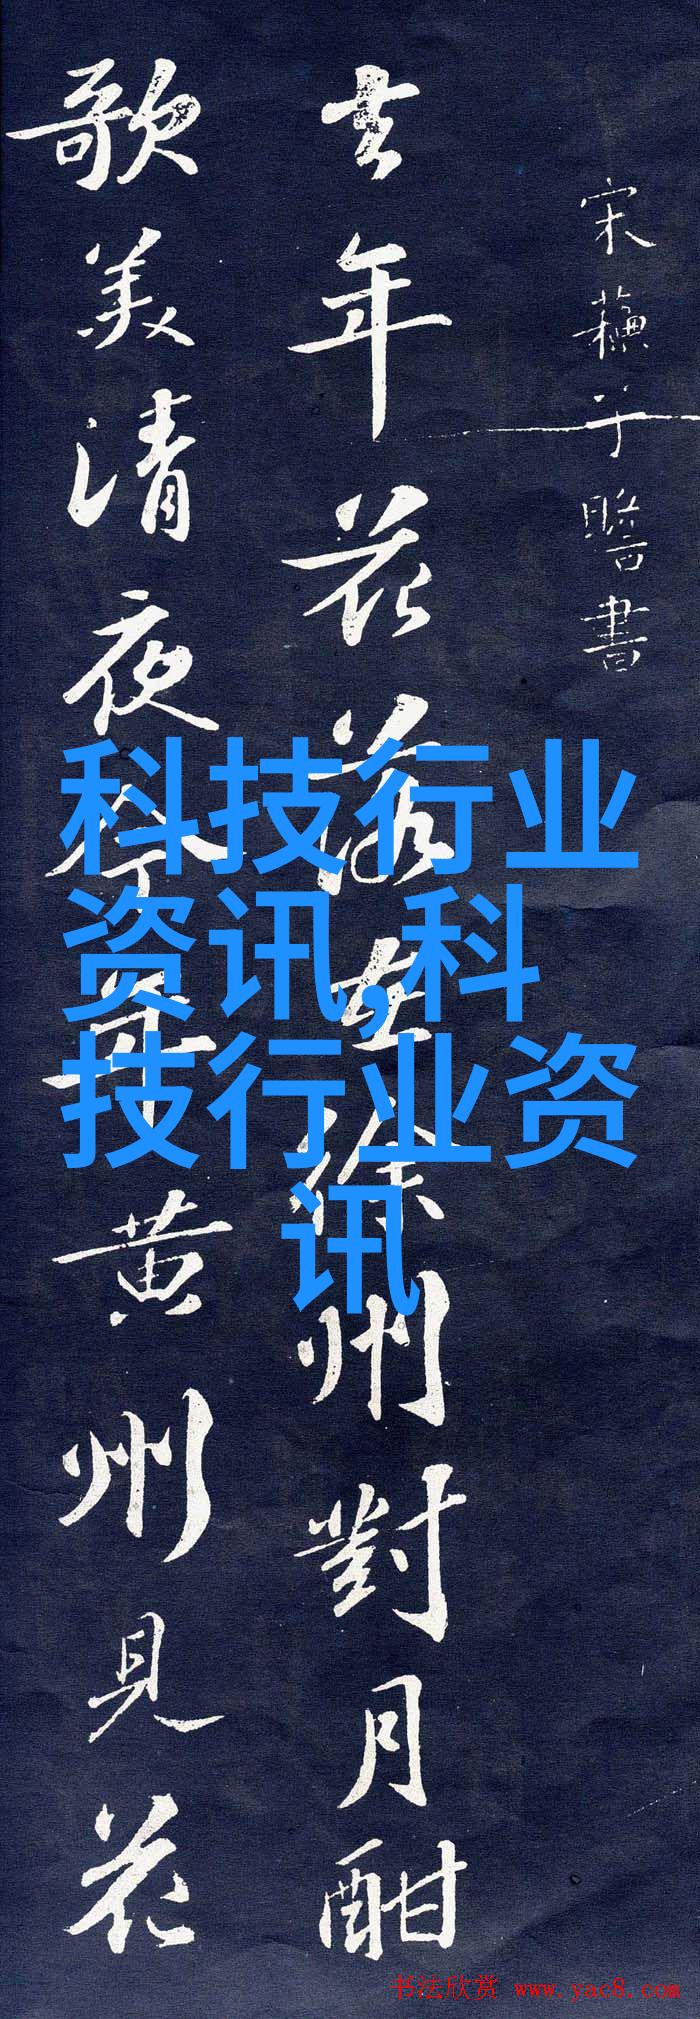 宋蘓子瞻書
去年花落在徐州對月酣
歌美清夜今年黄州見花
科技行业
资讯,科
技行业资
讯
书法欣赏 www.yac8.com